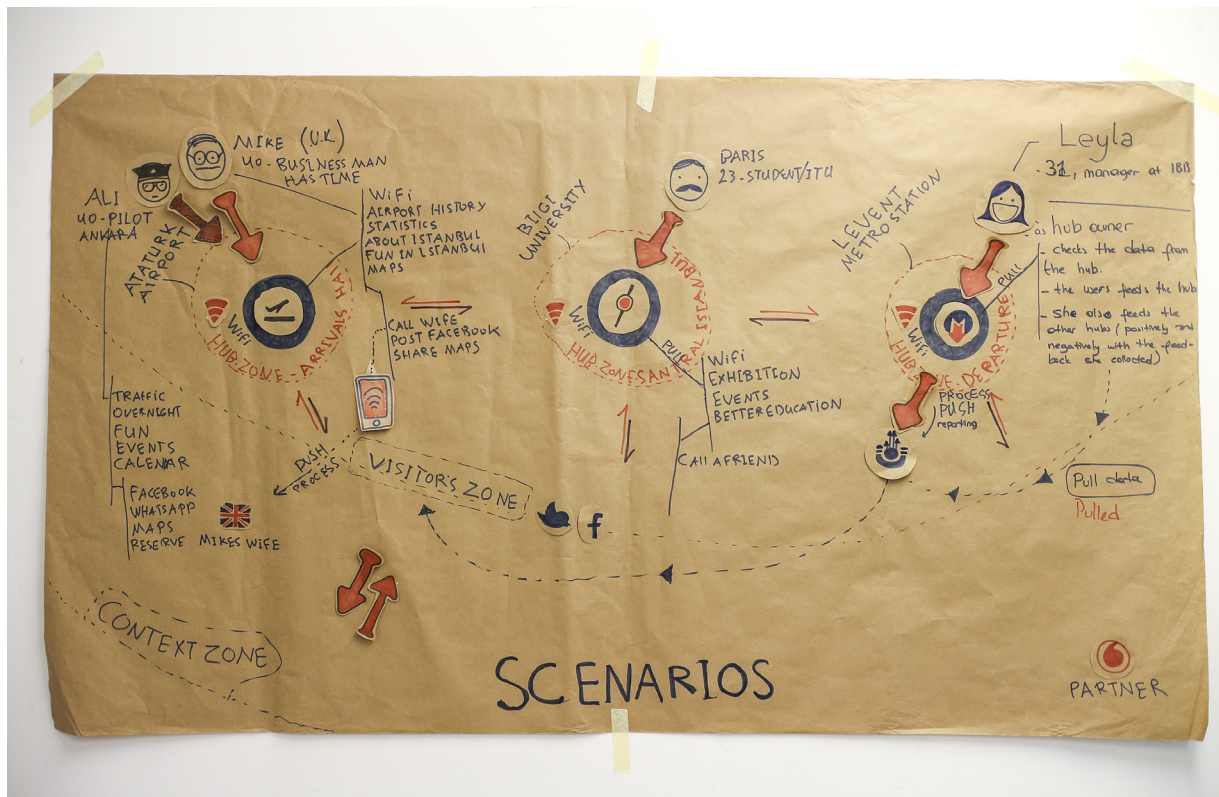 MIKE (U.K)
40 - BUSINESS MAN
HAS TIME
ALI
40-PILOT
ANKARA
ATATURK
AIRPORT
WiFi
AIRPORT HISTORY
STATISTICS
ABOUT ISTANBUL
FUN IN ISTANBUL
MAPS
WiFi
HUB ZONE - ARRIVALS HAll
CALL WIFE
POST FACEBOOK
SHARE MAPS
TRAFFIC
OVERNIGHT
FUN
EVENTS
CALENAR
FACEBOOK
WHATSAPP
MAPS
RESERVE
MIKES WIFE
PUSH
PROCESS
VISITOR'S ZONE
CONTEXT ZONE
BILGI
UNIVERSITY
PARIS
23-STUDENT/ITU
WiFi
HUB ZONE SANTRAL ISTANBUL
PULL
WiFi
EXHIBITION
EVENTS
BETTER EDUCATION
CAll A FRIEND
f
LEVENT
METROSTATION
Leyla
- 31, manager at IBB
as hub owner
- checks the data from
the hub.
- the users feeds the hub
- She also feeds the
other hubs (positively and
negatively with the feed-
back she collected)
PULL
WiFi
M
DEPARTURE
PROCESS
PUSH
reporting
Pull data
Pulled
SCENARIOS
PARTNER